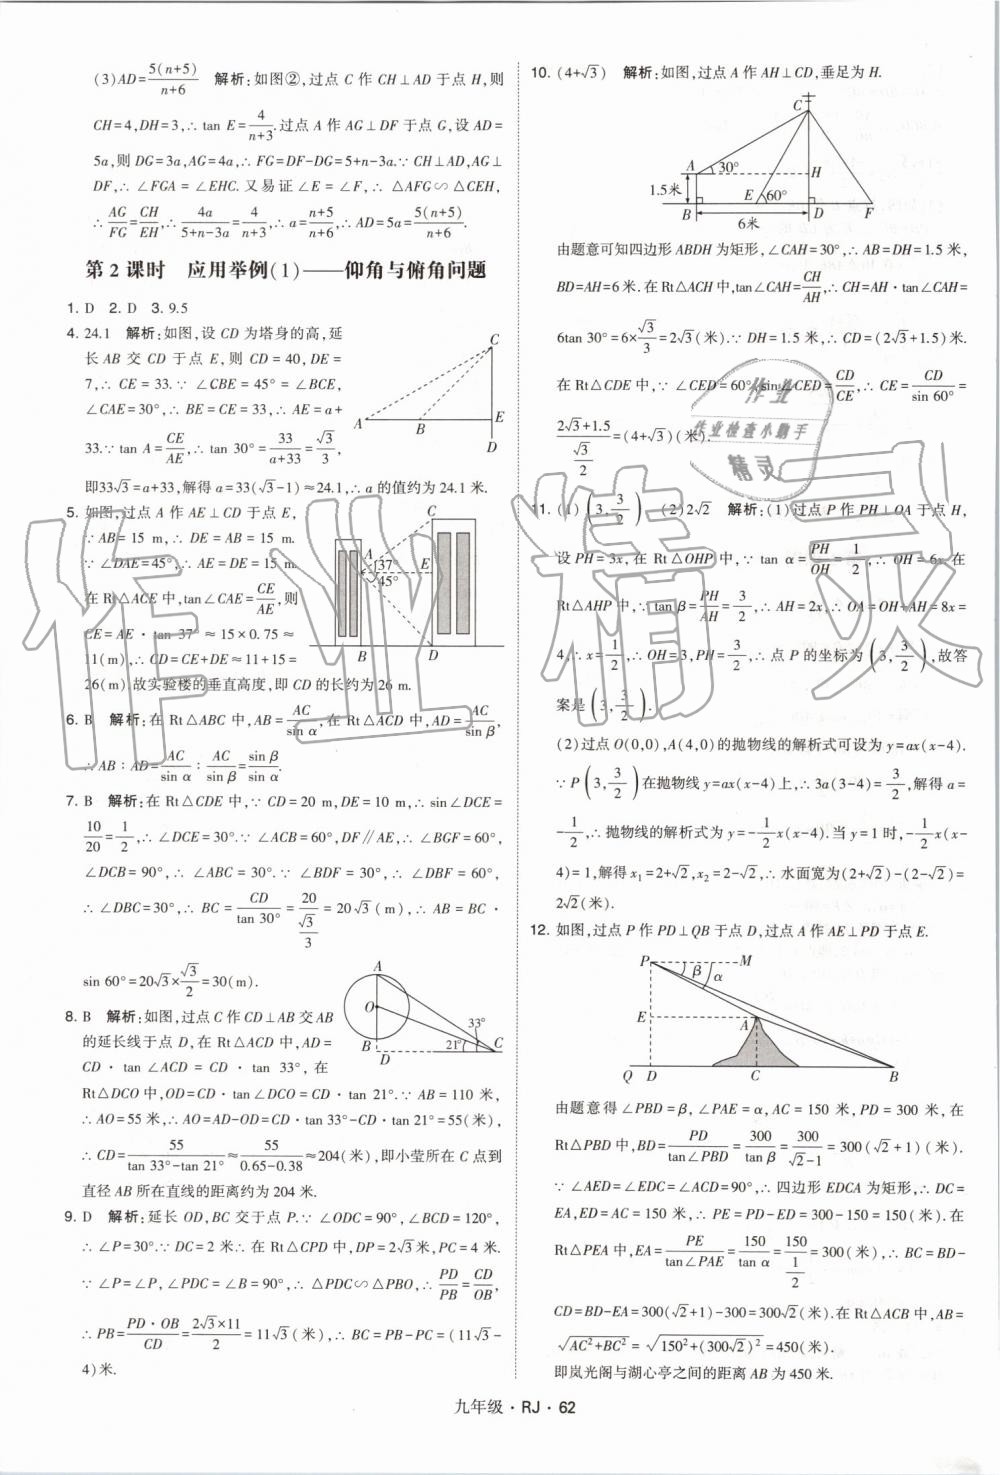 (3)AD=5(n+5)/(n+6) 解析:如图②,过点 C 作 CH⊥AD 于点 H,则
CH=4,DH=3,∴tan E=4/(n+3).过点 A 作 AG⊥DF 于点 G,设 AD=
5a,则 DG=3a,AG=4a,∴FG=DF-DG=5+n-3a.∵CH⊥AD,AG⊥
DF,∴∠FGA=∠EHC.又易证∠E=∠F,∴△AFG∽△CEH,
∴AG/FG=CH/EH,∴4a/(5+n-3a)=4/(n+3),∴a=(n+5)/(n+6),∴AD=5a=5(n+5)/(n+6).
第 2 课时 应用举例(1)——仰角与俯角问题
1. D 2. D 3. 9.5
4. 24.1 解析:如图,设 CD 为塔身的高,延
长 AB 交 CD 于点 E,则 CD=40,DE=
7,∴CE=33.∵∠CBE=45°=∠BCE,
∠CAE=30°,∴BE=CE=33,∴AE=a+
33.∵tan A=CE/AE,∴tan 30°=33/(a+33)=√3/3,
即33√3=a+33,解得 a=33(√3-1)≈24.1,∴a 的值约为 24.1 米.
C
A B E
D
5. 如图,过点 A 作 AE⊥CD 于点 E,
∵AB=15 m,∴DE=AB=15 m.
∵∠DAE=45°,∴AE=DE=15 m.
在 Rt△ACE 中,tan∠CAE=CE/AE,则
CE=AE·tan 37°≈15×0.75≈
11(m),∴CD=CE+DE≈11+15=
26(m).故实验楼的垂直高度,即 CD 的长约为 26 m.
C
A 37° E
45°
B D
6. B 解析:在 Rt△ABC 中,AB=AC/sin α,在 Rt△ACD 中,AD=AC/sin β,
∴AB∶AD=AC/sin α∶AC/sin β=sin β/sin α.
7. B 解析:在 Rt△CDE 中,∵CD=20 m,DE=10 m,∴sin∠DCE=
10/20=1/2,∴∠DCE=30°.∵∠ACB=60°,DF∥AE,∴∠BGF=60°,
∠DCB=90°,∴∠ABC=30°.∵∠BDF=30°,∴∠DBF=60°,
∴∠DBC=30°,∴BC=CD/tan 30°=20/(√3/3)=20√3(m),∴AB=BC·
sin 60°=20√3×√3/2=30(m).
8. B 解析:如图,过点 C 作 CD⊥AB 交AB
的延长线于点 D,在 Rt△ACD 中,AD=
CD·tan∠ACD=CD·tan 33°,在
Rt△DCO 中,OD=CD·tan∠DCO=CD·tan 21°.∵AB=110 米,
∴AO=55 米,∴AO=AD-OD=CD·tan 33°-CD·tan 21°=55(米),
∴CD=55/(tan 33°-tan 21°)≈55/(0.65-0.38)≈204(米),即小莹所在 C 点到
直径 AB 所在直线的距离约为 204 米.
A
O
33°
B 21° C
D
9. D 解析:延长 OD,BC 交于点 P.∵∠ODC=90°,∠BCD=120°,
∴∠P=30°.∵DC=2 米∴在 Rt△CPD 中,DP=2√3米,PC=4 米.
∵∠P=∠P,∠PDC=∠B=90°,∴△PDC∽△PBO,∴PD/PB=CD/OB,
∴PB=PD·OB/CD=2√3×11/2=11√3(米),∴BC=PB-PC=(11√3-
4)米.
10. (4+√3) 解析:如图,过点 A 作 AH⊥CD,垂足为 H.
C
A 30° H
1.5米
E 60°
B 6米 D F
由题意可知四边形 ABDH 为矩形,∠CAH=30°,∴AB=DH=1.5 米,
BD=AH=6米.在 Rt△ACH 中,tan∠CAH=CH/AH,∴CH=AH·tan∠CAH=
6tan 30°=6×√3/3=2√3(米).∵DH=1.5 米,∴CD=(2√3+1.5)米.
在 Rt△CDE 中,∵∠CED=60°,sin∠CED=CD/CE,∴CE=CD/sin 60°=
(2√3+1.5)/(√3/2)=(4+√3)(米).
作业
作业检查小助手
精灵
11. (1)(3,3/2) (2)2√2 解析:(1)过点 P 作 PH⊥OA 于点 H,
设 PH=3x,在 Rt△OHP 中,∵tan α=PH/OH=1/2,∴OH=6x.在
Rt△AHP 中,∵tan β=PH/AH=3/2,∴AH=2x,∴OA=OH+AH=8x=
4,∴x=1/2,∴OH=3,PH=3/2,∴点 P 的坐标为(3,3/2),故答
案是(3,3/2).
(2)过点 O(0,0),A(4,0)的抛物线的解析式可设为 y=ax(x-4).
∵P(3,3/2)在抛物线 y=ax(x-4)上,∴3a(3-4)=3/2,解得 a=
-1/2,∴抛物线的解析式为 y=-1/2x(x-4).当 y=1 时,-1/2x(x-
4)=1,解得 x₁=2+√2,x₂=2-√2,∴水面宽为(2+√2)-(2-√2)=
2√2(米).
12. 如图,过点 P 作 PD⊥QB 于点 D,过点 A 作 AE⊥PD 于点 E.
P M
β α
E A
Q D C B
由题意得∠PBD=β,∠PAE=α,AC=150 米,PD=300 米,在
Rt△PBD 中,BD=PD/tan∠PBD=300/tan β=300/(√2-1)=300(√2+1)(米).
∵∠AED=∠EDC=∠ACD=90°,∴四边形 EDCA 为矩形,∴DC=
EA,ED=AC=150 米,∴PE=PD-ED=300-150=150(米).在
Rt△PEA 中,EA=PE/tan∠PAE=150/tan α=150/(1/2)=300(米),∴BC=BD-
CD=BD-EA=300(√2+1)-300=300√2(米).在 Rt△ACB 中,AB=
√(AC²+BC²)=√(150²+(300√2)²)=450(米).
即岚光阁与湖心亭之间的距离 AB 为 450 米.
作业精灵
九年级·RJ·62